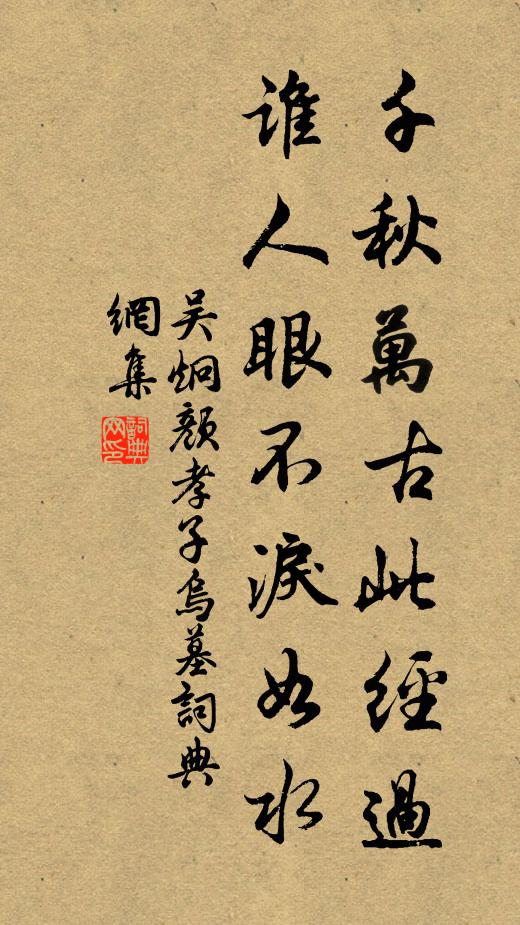 千秋萬古此經過
谁人眼不淚如水
吴炯顏孝子烏墓詞典
網集
詞典网印